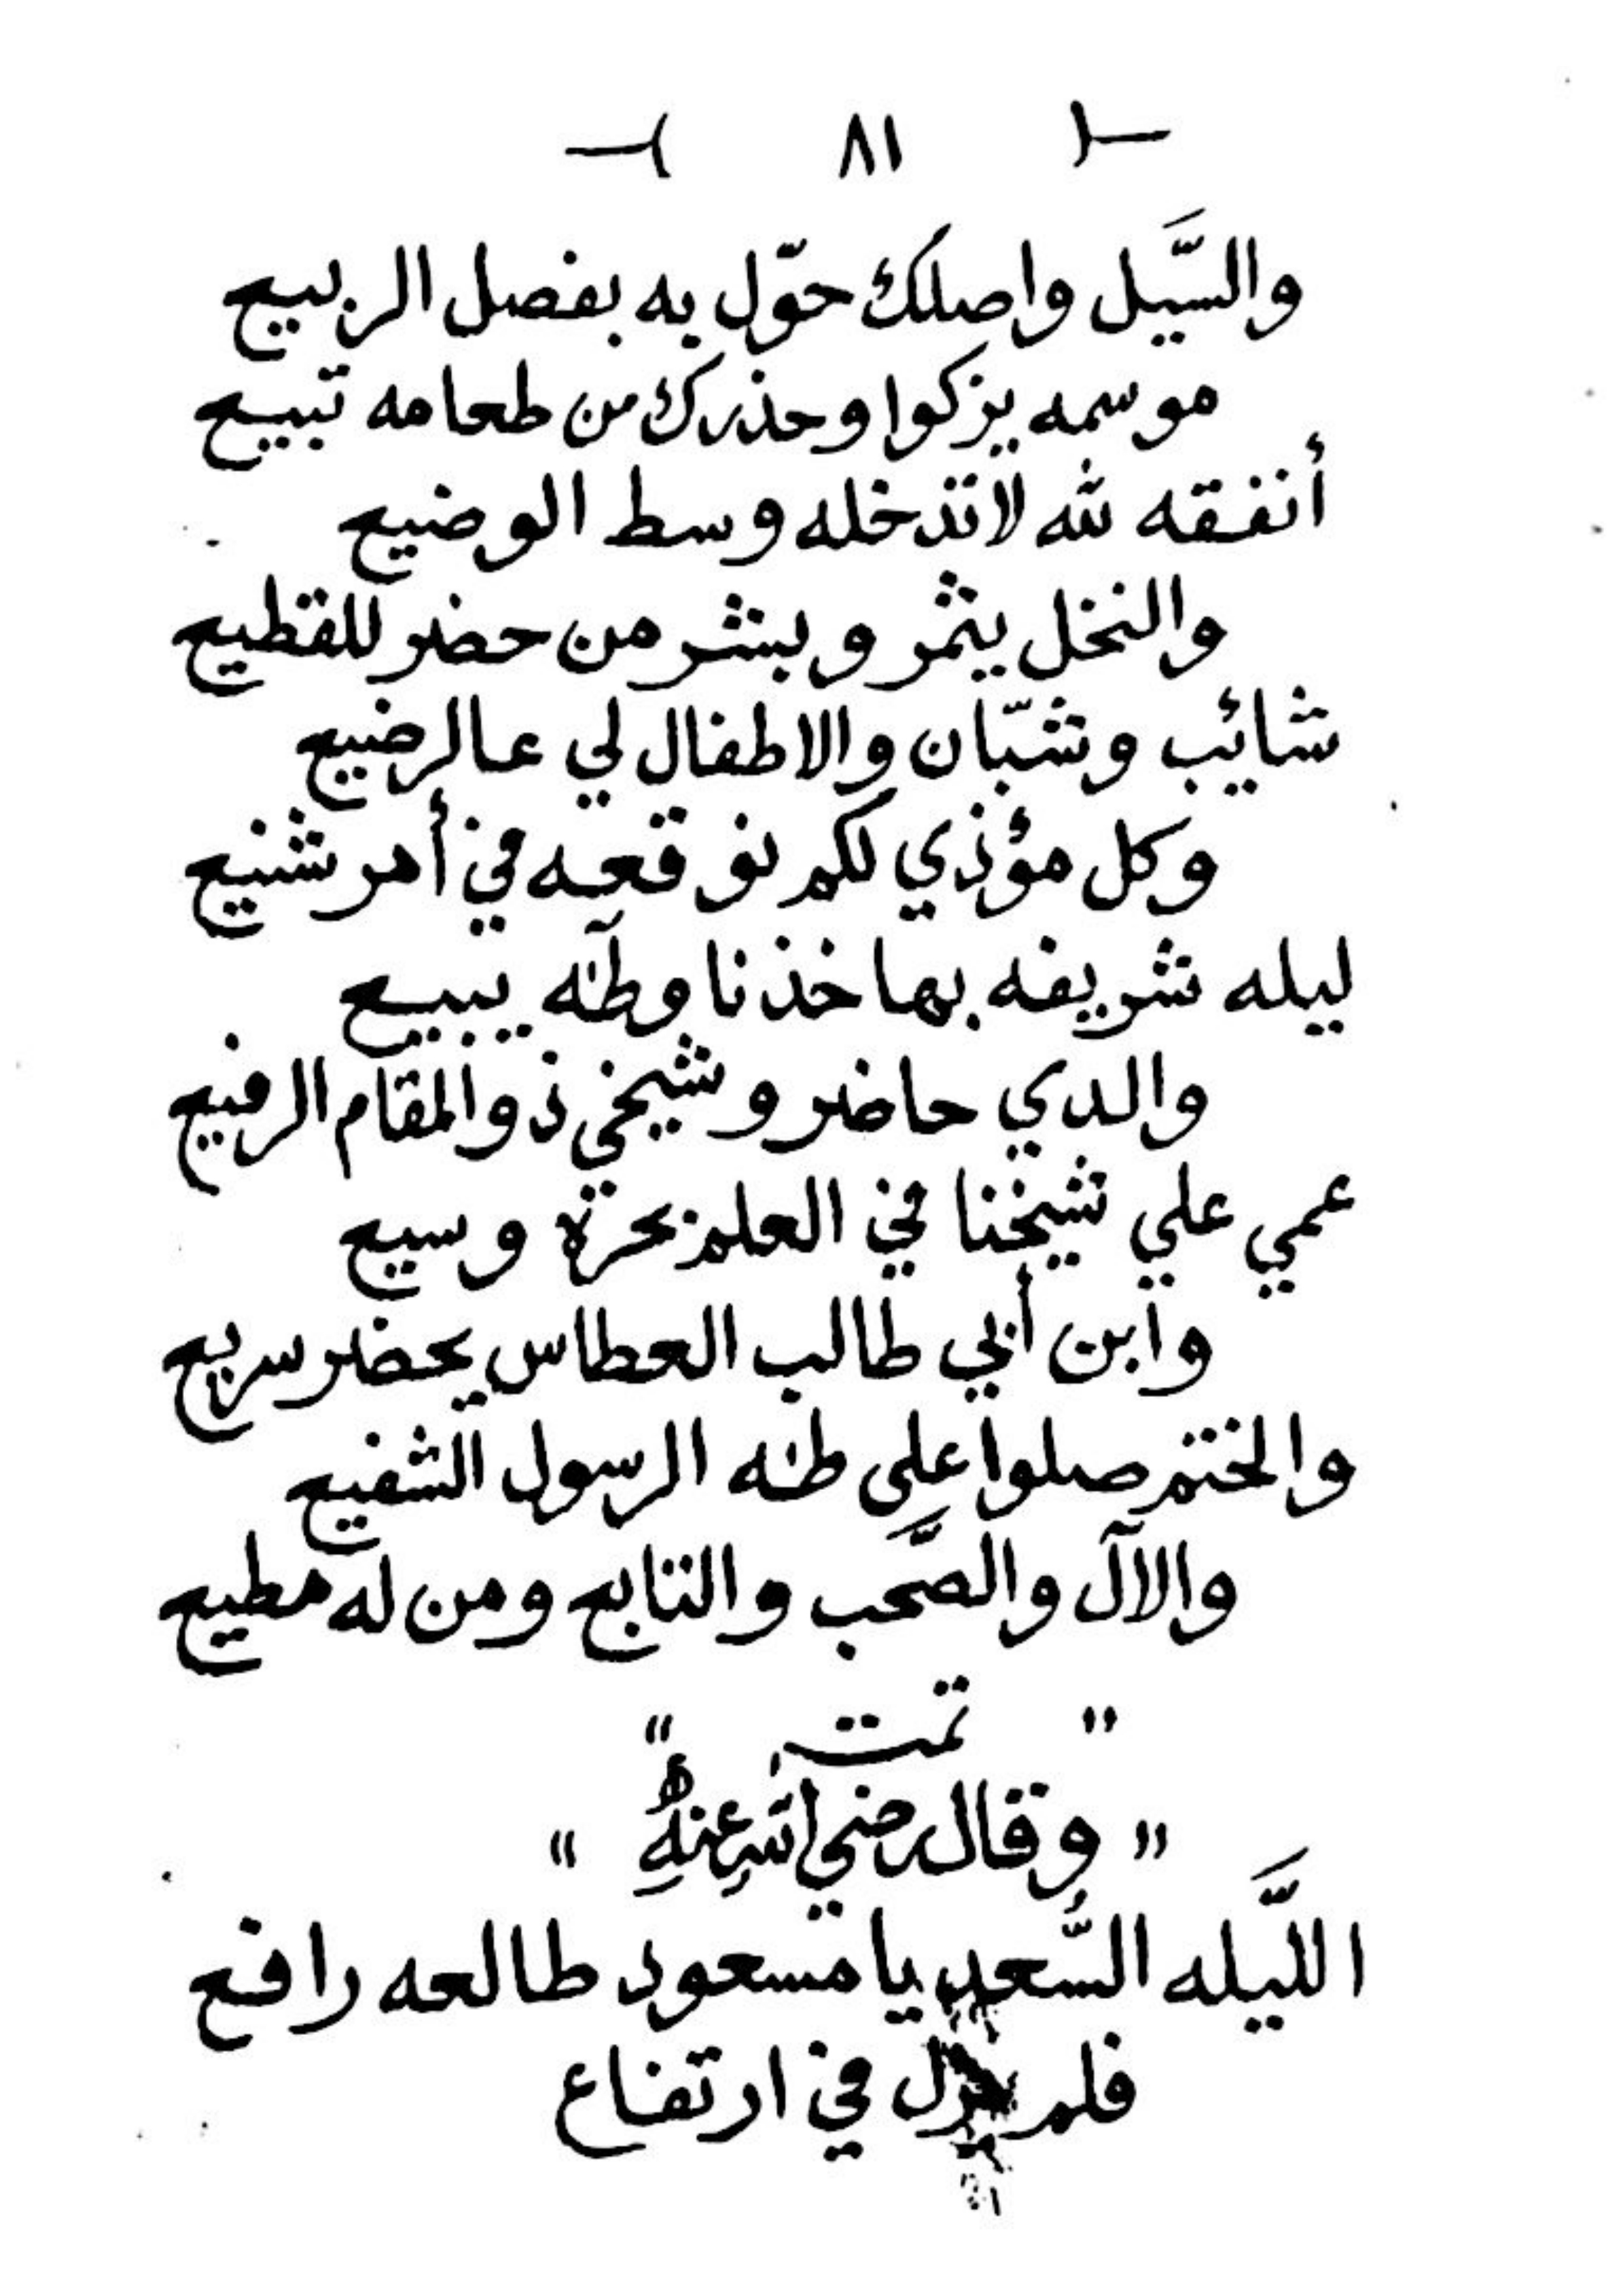 ٨١
والسَّيل واصلك حوّل به بفصل الربيع
موسمه يزكوا وحذرك من طعامه تبيع
أنفقه لله لا تدخله وسط الوضيع
والنخل يثمر وبنثر من حضر للقطيع
شائب وشبّان والاطفال لي عالرضيع
وكل مؤذي لكم نوقعه في أمر شنيع
ليله شريفه بها خذنا وطٰه يبيع
والدي حاضر وشيخي ذو المقام الرفيع
عمي علي شيخنا في العلم بحرة وسيع
وابن أبي طالب العطاس يحضر سريع
والختم صلوا على طٰه الرسول الشفيع
والآل والصَّحب والتابع ومن له مطيع
" تمت "
" وقال رضي الله عنه "
اللَّيله السَّعد يا مسعود طالعه رافع
فلم في ارتفاع